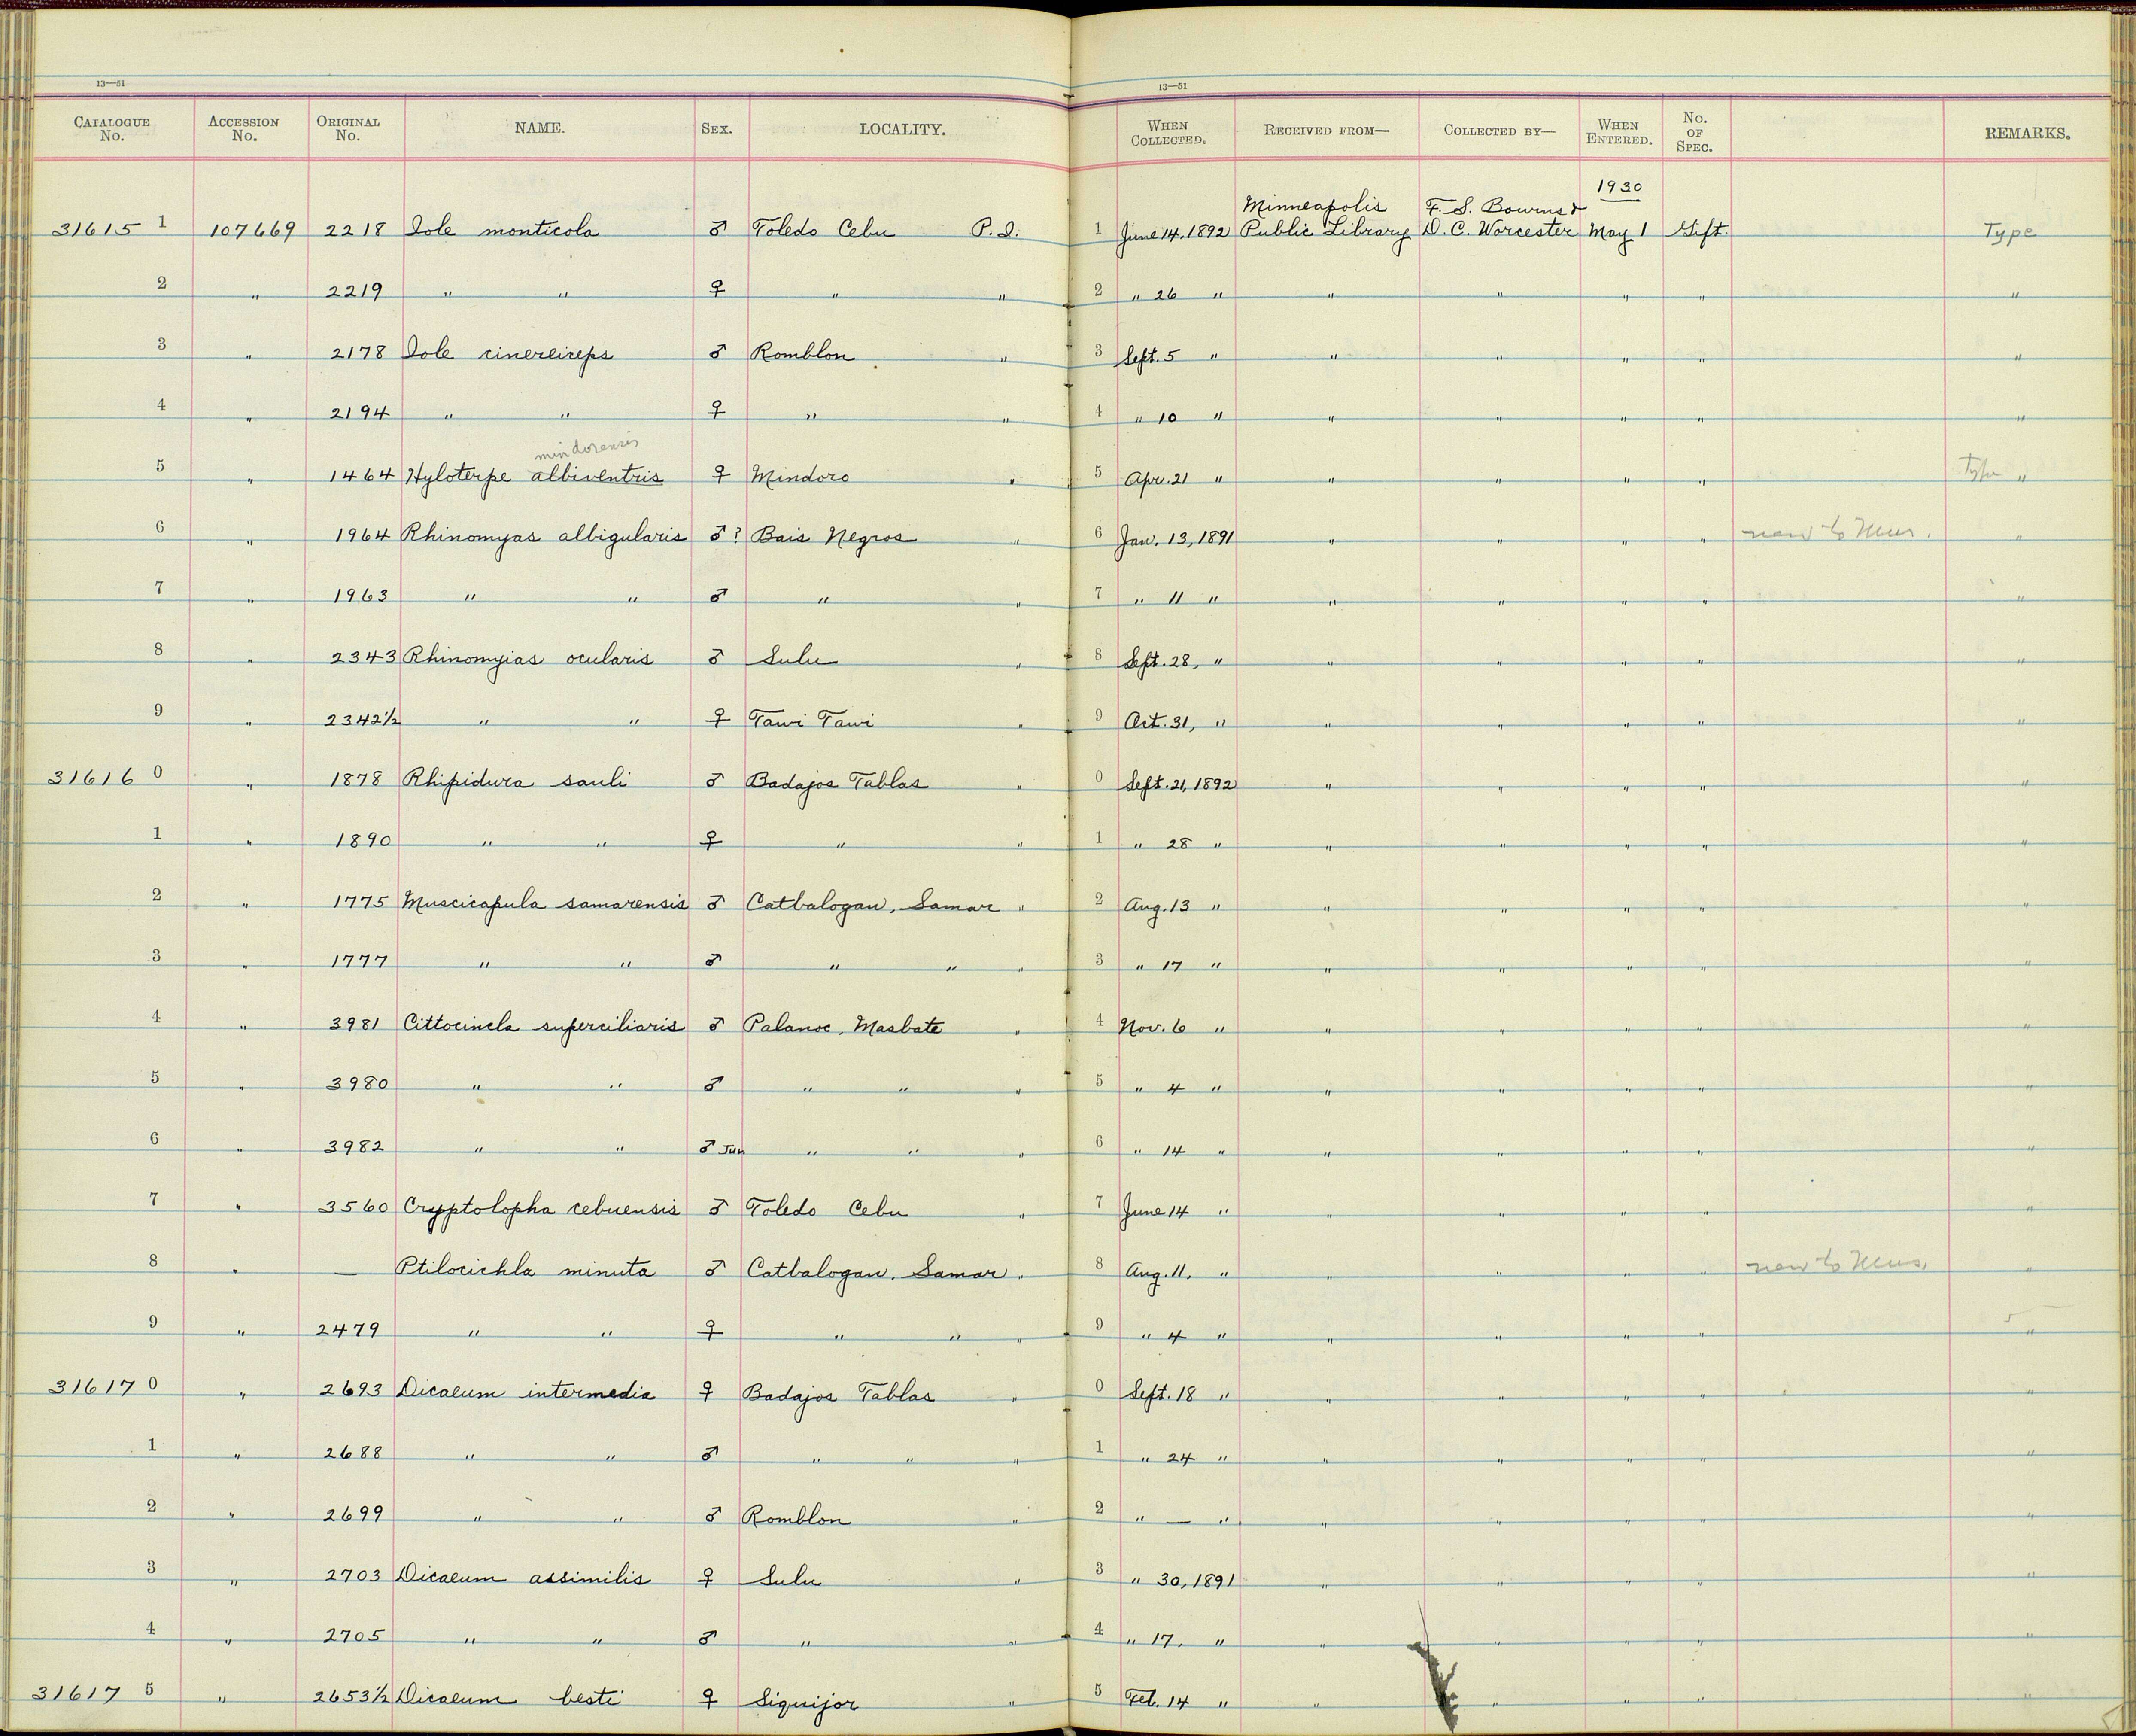 13—51
13—51
CATALOGUE No. ACCESSION No. ORIGINAL No. NAME. SEX. LOCALITY. WHEN COLLECTED. RECEIVED FROM— COLLECTED BY— WHEN ENTERED. No. OF SPEC. REMARKS.
1930
Minneapolis F. S. Bourns &
31615 1 107669 2218 Iole monticola ♂ Toledo Cebu P.I. 1 June 14, 1892 Public Library D. C. Worcester May 1 Gift. Type
2 " 2219 " " ♀ " " 2 " 26 " " " " " "
3 " 2178 Iole cinereiceps ♂ Romblon " 3 Sept. 5 " " " " " "
4 " 2194 " " ♀ " " 4 " 10 " " " " " "
mindorensis
5 " 1464 Hyloterpe albiventris ♀ Mindoro " 5 Apr. 21 " " " " " Type "
6 " 1964 Rhinomyas albigularis ♂? Bais Negros " 6 Jan. 13, 1891 " " " " new to Mus. "
7 " 1963 " " ♂ " " 7 " 11 " " " " " "
8 " 2343 Rhinomyias ocularis ♂ Sulu " 8 Sept. 28, " " " " " "
9 " 2342½ " " ♀ Tawi Tawi " 9 Oct. 31, " " " " " "
31616 0 " 1878 Rhipidura sauli ♂ Badajos Tablas " 0 Sept. 21, 1892 " " " " "
1 " 1890 " " ♀ " " 1 " 28 " " " " " "
2 " 1775 Muscicapula samarensis ♂ Catbalogan, Samar " 2 Aug. 13 " " " " " "
3 " 1777 " " ♂ " " " 3 " 17 " " " " " "
4 " 3981 Cittocincla superciliaris ♂ Palanoc, Masbate " 4 Nov. 6 " " " " " "
5 " 3980 " " ♂ " " " 5 " 4 " " " " " "
6 " 3982 " " ♂ Juv " " " 6 " 14 " " " " " "
7 " 3560 Cryptolopha cebuensis ♂ Toledo Cebu " 7 June 14 " " " " " "
8 " — Ptilocichla minuta ♂ Catbalogan, Samar " 8 Aug. 11, " " " " " new to Mus. "
9 " 2479 " " ♀ " " " 9 " 4 " " " " " "
31617 0 " 2693 Dicaeum intermedia ♀ Badajos Tablas " 0 Sept. 18 " " " " " "
1 " 2688 " " ♂ " " " 1 " 24 " " " " " "
2 " 2699 " " ♂ Romblon " 2 " — " " " " " "
3 " 2703 Dicaeum assimilis ♀ Sulu " 3 " 30, 1891 " " " " "
4 " 2705 " " ♂ " " 4 " 17, " " " " " "
31617 5 " 2653½ Dicaeum besti ♀ Siquijor " 5 Feb. 14 " " " " " "